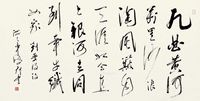 九曲黄河
万里沙浪
淘风簸自
天涯如今直
上银河去同
到牵牛织
女家 刘禹锡诗